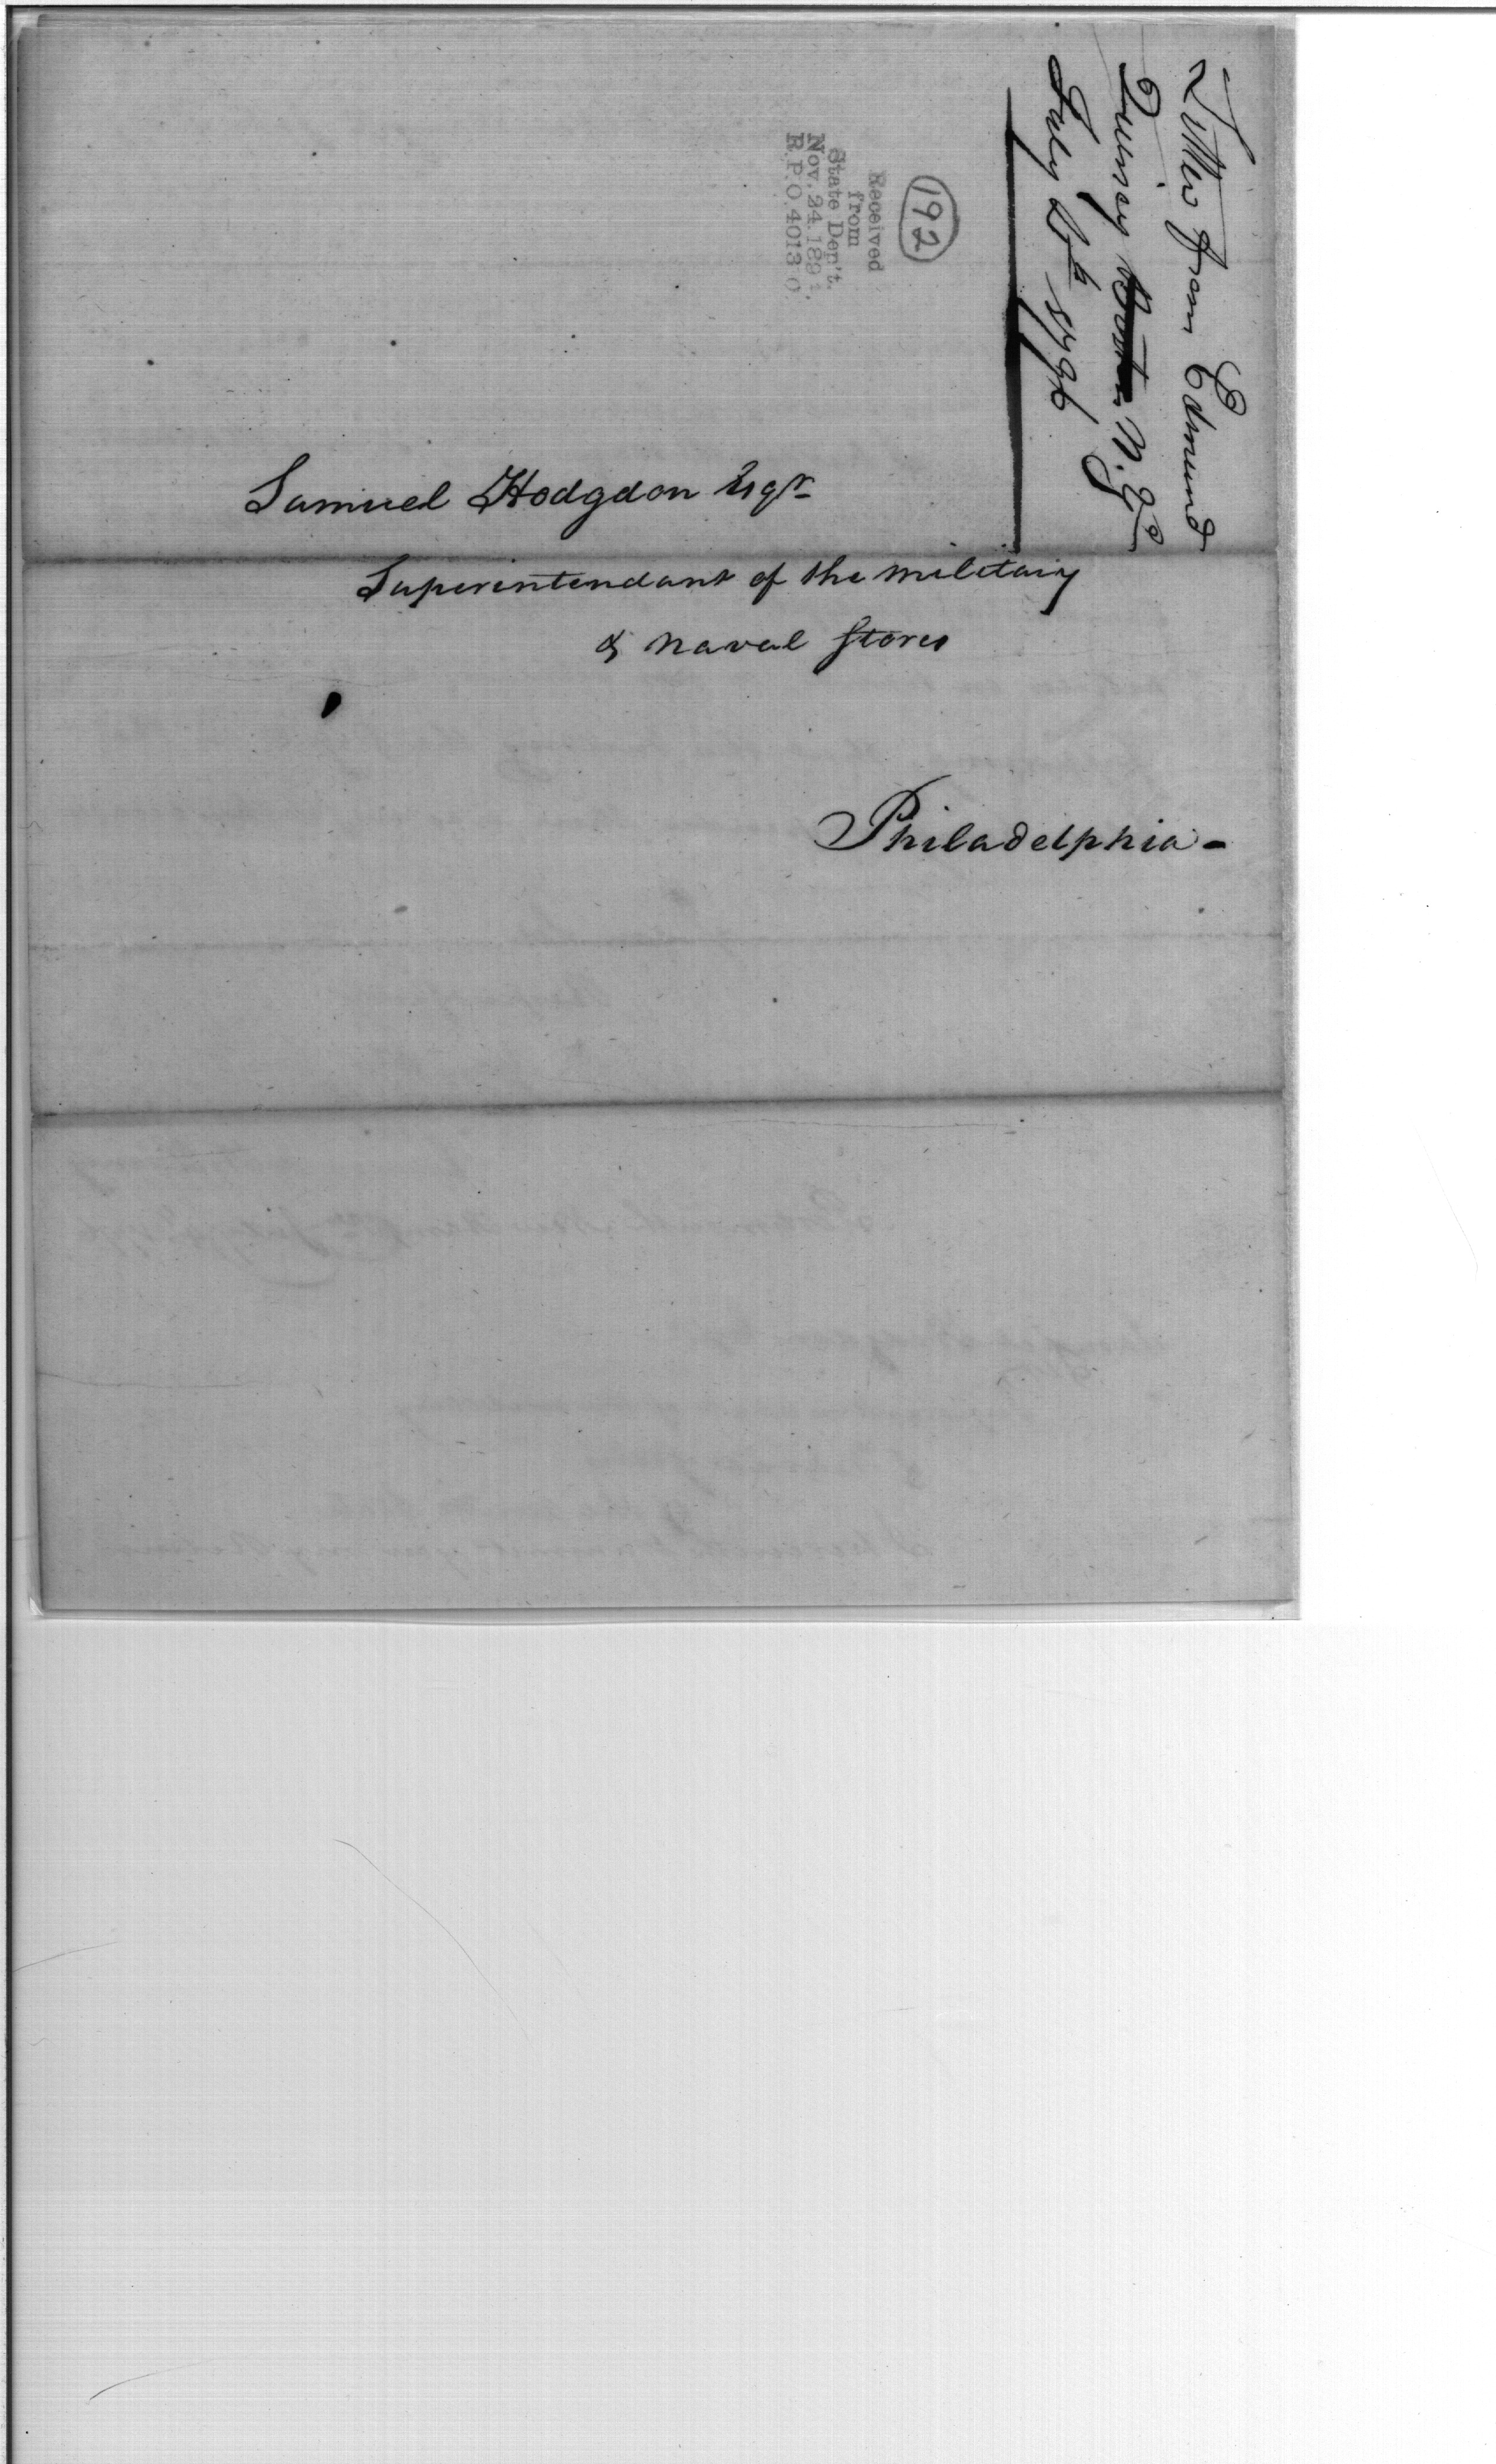 Letter from Edmund
Quinsey Boston N. H.
July 1796
192
Received
from
State Dep't.
Nov. 24. 189
R.P.O. 40130
Samuel Hodgdon Esqr
Superintendant of the military
& naval Stores
Philadelphia -